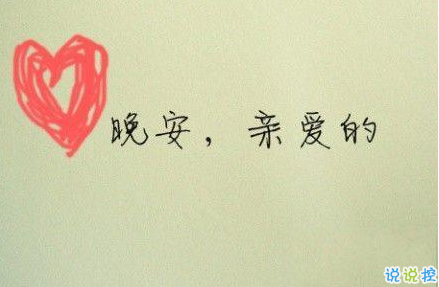 晚安，亲爱的
说说控